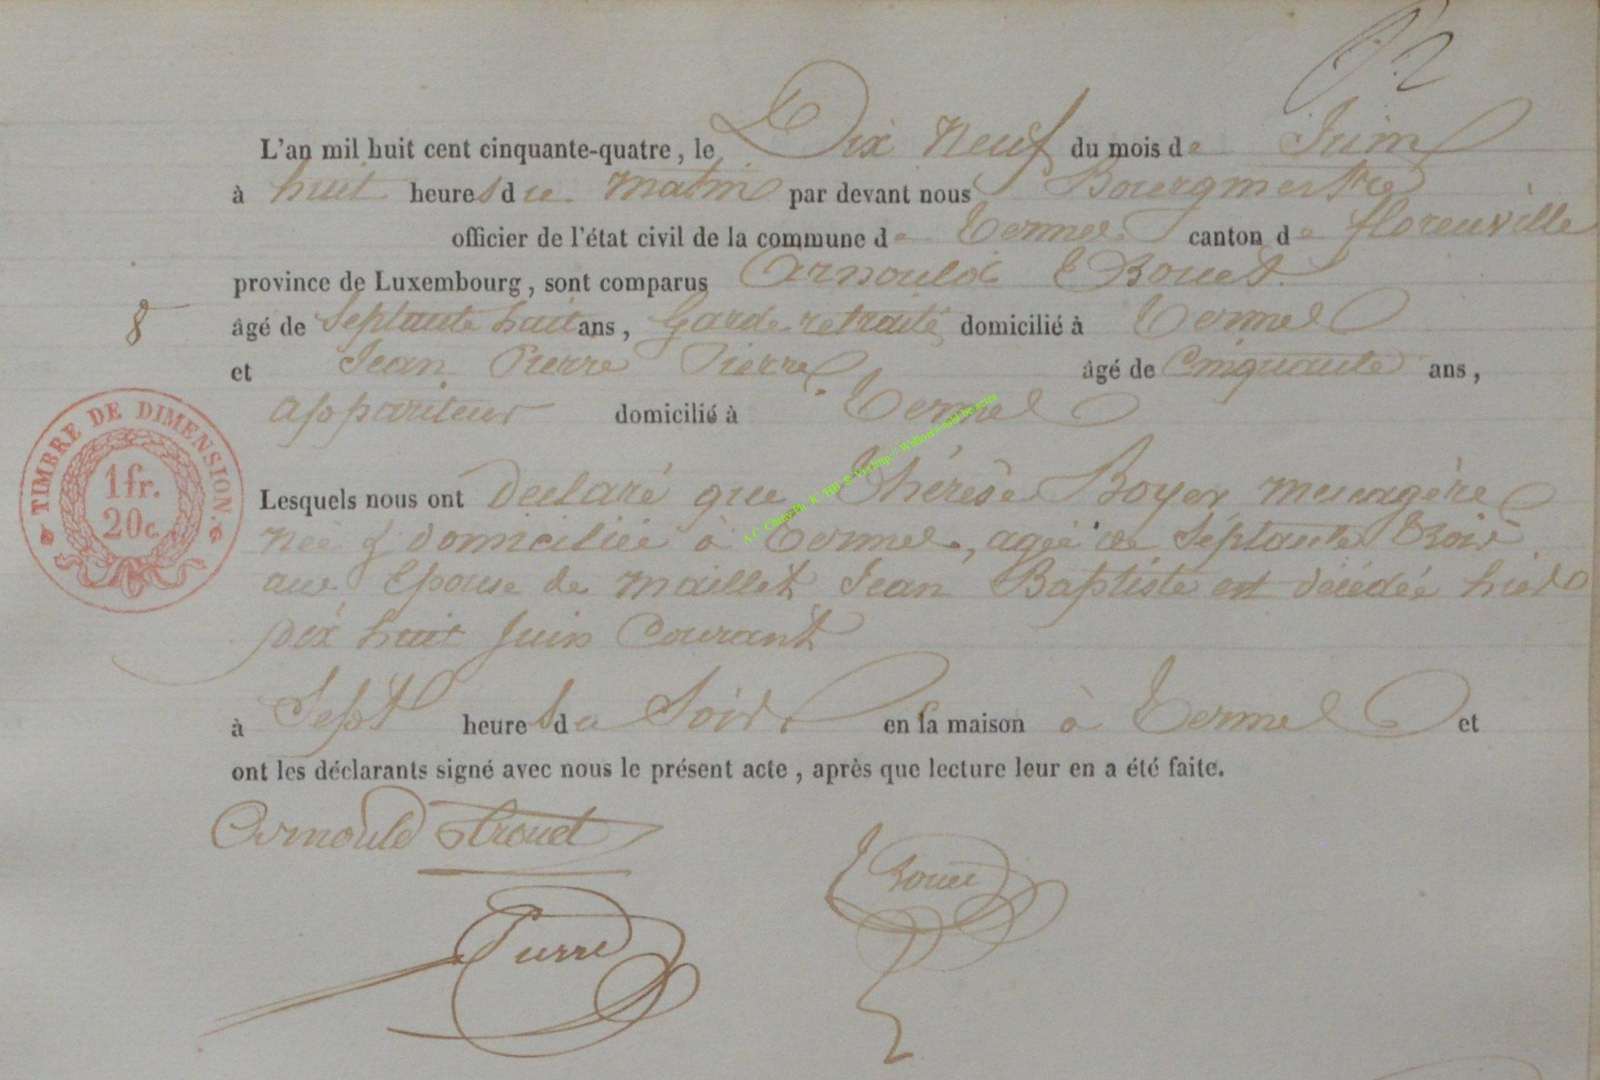 L'an mil huit cent cinquante-quatre, le Dix neuf du mois de Juin
à huit heures du matin par devant nous Bourgmestre
officier de l'état civil de la commune de Termes canton de florenville
province de Luxembourg, sont comparus Arnould Trouet
8
âgé de Septante huit ans, Garde retraité domicilié à Termes
et Jean Pierre Pierre âgé de Cinquante ans,
appariteur domicilié à Termes
TIMBRE DE DIMENSION.
1 fr.
20c.
Lesquels nous ont déclaré que Thérèse Boyer menagère
née & domiciliée à Termes, agée de Septante trois
ans Epouse de Maillet Jean Baptiste est décédée hier
dix huit Juin Courant
à Sept heures du Soir en sa maison à Termes et
ont les déclarants signé avec nous le présent acte, après que lecture leur en a été faite.
Arnould Trouet
Trouet
Pierre